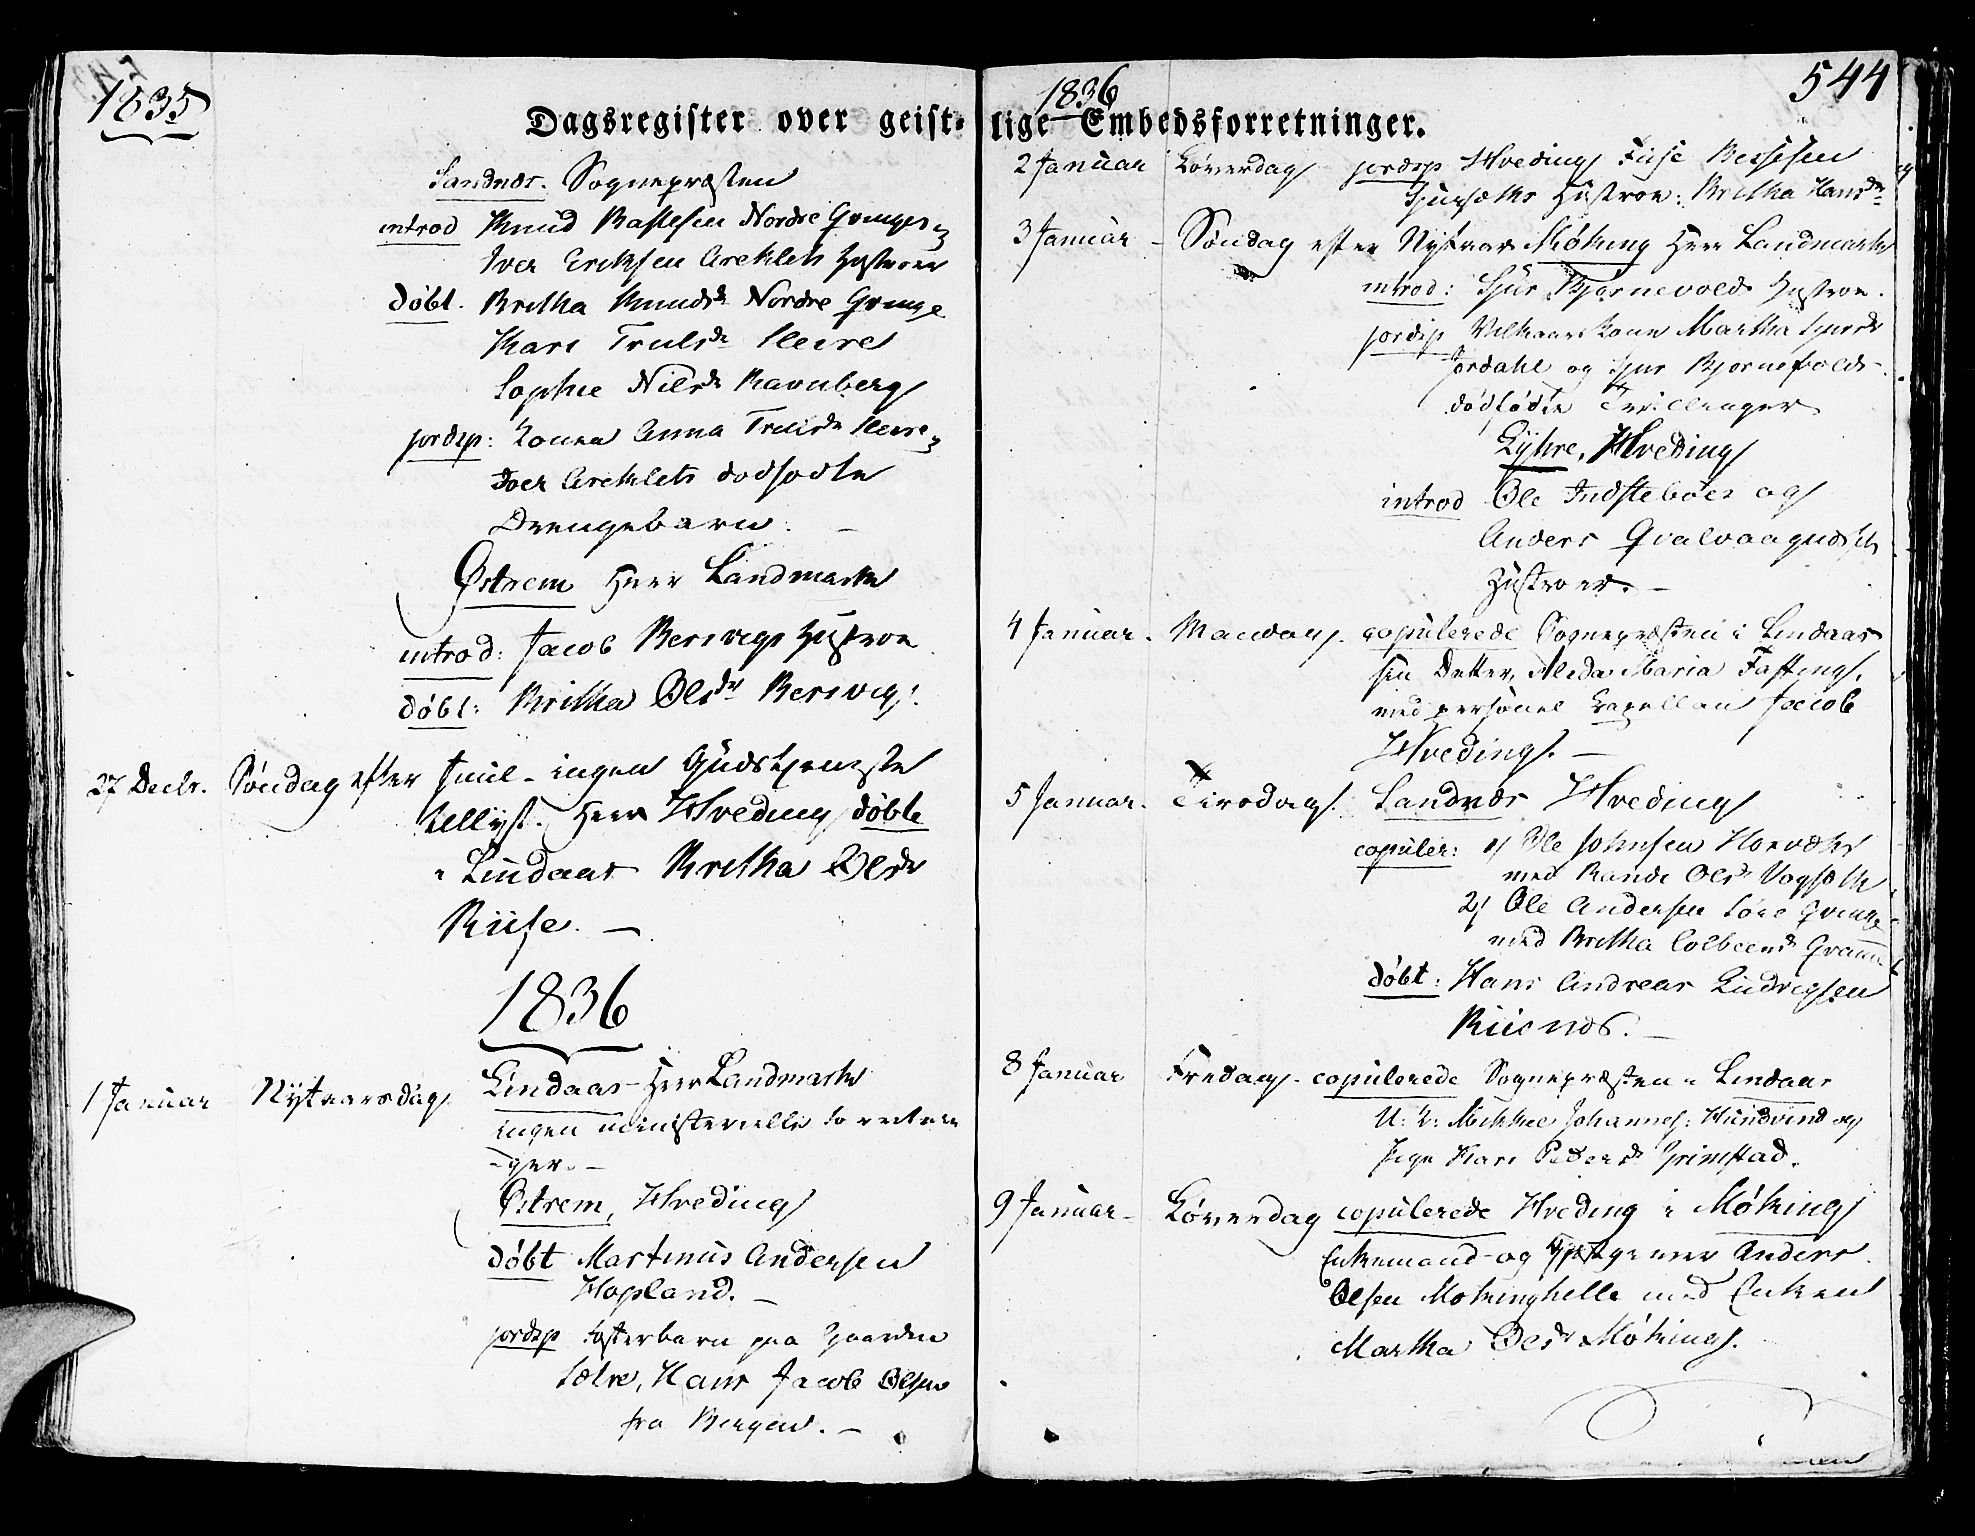 1835
Dagsregister over geist-
Sandnæs. Sognepræsten
introd Knud Nordre Qvinge
Iver Eriksen Areklets Hustroer
døbt. Britha Knudsdr Nordre Qvinge
Kari Trulsdr
Sophie Nilsdr Ravnberg
jordsp: Konen Anna Trulsdr
Iver Areklets dødfødte
Drengebarn. –
Østrem Herr Landmark
introd: Jacob Bersvigs Hustroe
døbt: Britha Olsdr Bersvig.
27 Decbr. Søndag efter Juul - ingen Gudstjeneste
tillyst. Herr Hveding døbte
i Lindaas Britha Olsdr
Riise. –
1836
1 Januar Nytaarsdag Lindaas - Herr Landmark
ingen ministerielle Forretnin
-ger. –
Østrem, Hveding
døbt Martinus Andersen
Hopland. –
jordsp Fosterbarn paa Gaarden
Hans Jacob Olsen
fra Bergen. –
1836
544
lige Embedsforretninger.
2 Januar Løverdag jordsp Hveding
Hustroe: Britha Hansdr
3 Januar - Søndag efter Nytaar Møking Herr Landmark
introd: Sjur Bjørnevolds Hustroe.
jordsp Vilkaars Kone Martha Sjursdr
Jordahl og Sjur Bjørnevolds
dødfødte Tvillinger
Lyhre, Hveding
introd Ole Indstebøes og
Anders Qvalvaag
Hustroer. –
4 Januar. Mandag. copulerede Sognepræsten i Lindaas
sin Datter, Alida Maria Fasting,
med personel Capellan Jacob
Hveding. –
5 Januar. Tirsdag. Sandnæs Hveding
copuler: 1/ Ole Johnsen
med Rande Olsdr Vogsæth
2/ Ole Andersen Qvinge
med Britha Colbeensdr
døbt: Hans Andreas Ludvigsen
Riisnæs. –
8 Januar Fredag. copulerede Sognepræsten i Lindaas
U: K: Mikkel Johannes: Hundvind og
Pige Kari Pedersdr Grimstad.
9 Januar - Løverdag copulerede Hveding i Møking
Enkemand og Anders
Olsen Mokinghelle med Enken
Martha Olsdr Møking.